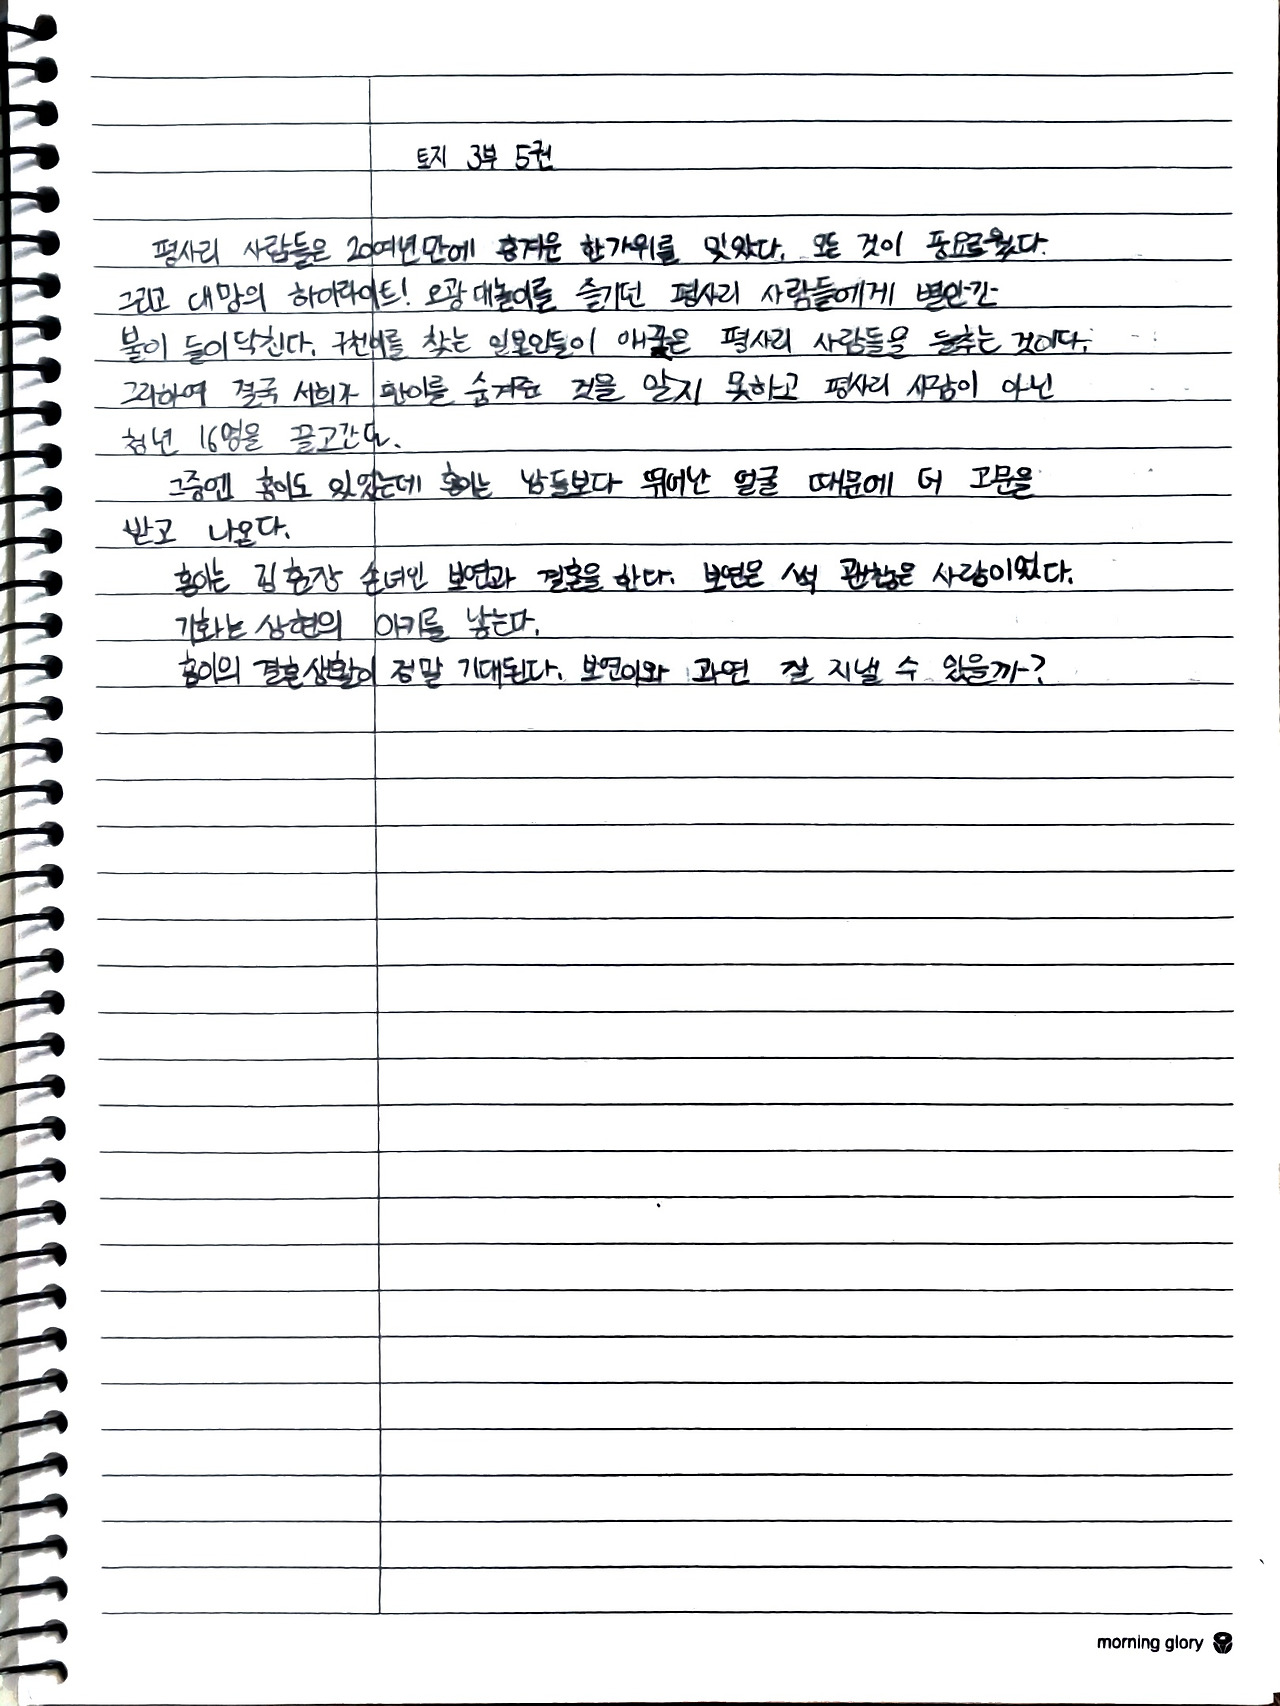 토지 3부 5권
평사리 사람들은 20여년만에 흥겨운 한가위를 맞았다. 모든 것이 풍요로웠다.
그리고 대망의 하이라이트! 오광대놀이를 즐기던 평사리 사람들에게 별안간
불이 들이닥친다. 구천이를 찾는 일본인들이 애꿎은 평사리 사람들을 들추는 것이다.
그리하여 결국 서희가 환이를 숨겨준 것을 알지 못하고 평사리 사람이 아닌
청년 16명을 끌고간다.
그중엔 홍이도 있었는데 홍이는 남들보다 뛰어난 얼굴 때문에 더 고문을
받고 나온다.
홍이는 김훈장 손녀인 보연과 결혼을 한다. 보연은 썩 괜찮은 사람이었다.
기화는 상현의 아기를 낳는다.
홍이의 결혼생활이 정말 기대된다. 보연이와 과연 잘 지낼 수 있을까?
morning glory